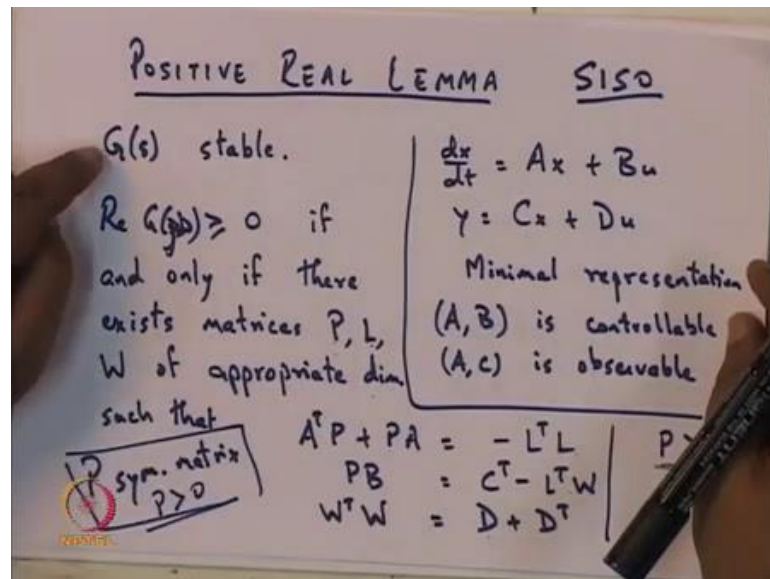 POSITIVE REAL LEMMA SISO
G(s) stable.
Re G(jω) ≥ 0 if
and only if there
exists matrices P, L,
W of appropriate dim.
such that
P sym. matrix
P > 0
dx/dt = Ax + Bu
y = Cx + Du
Minimal representation
(A, B) is controllable
(A, C) is observable
AᵀP + PA = - LᵀL
PB = Cᵀ - LᵀW
WᵀW = D + Dᵀ
P >
NPTEL